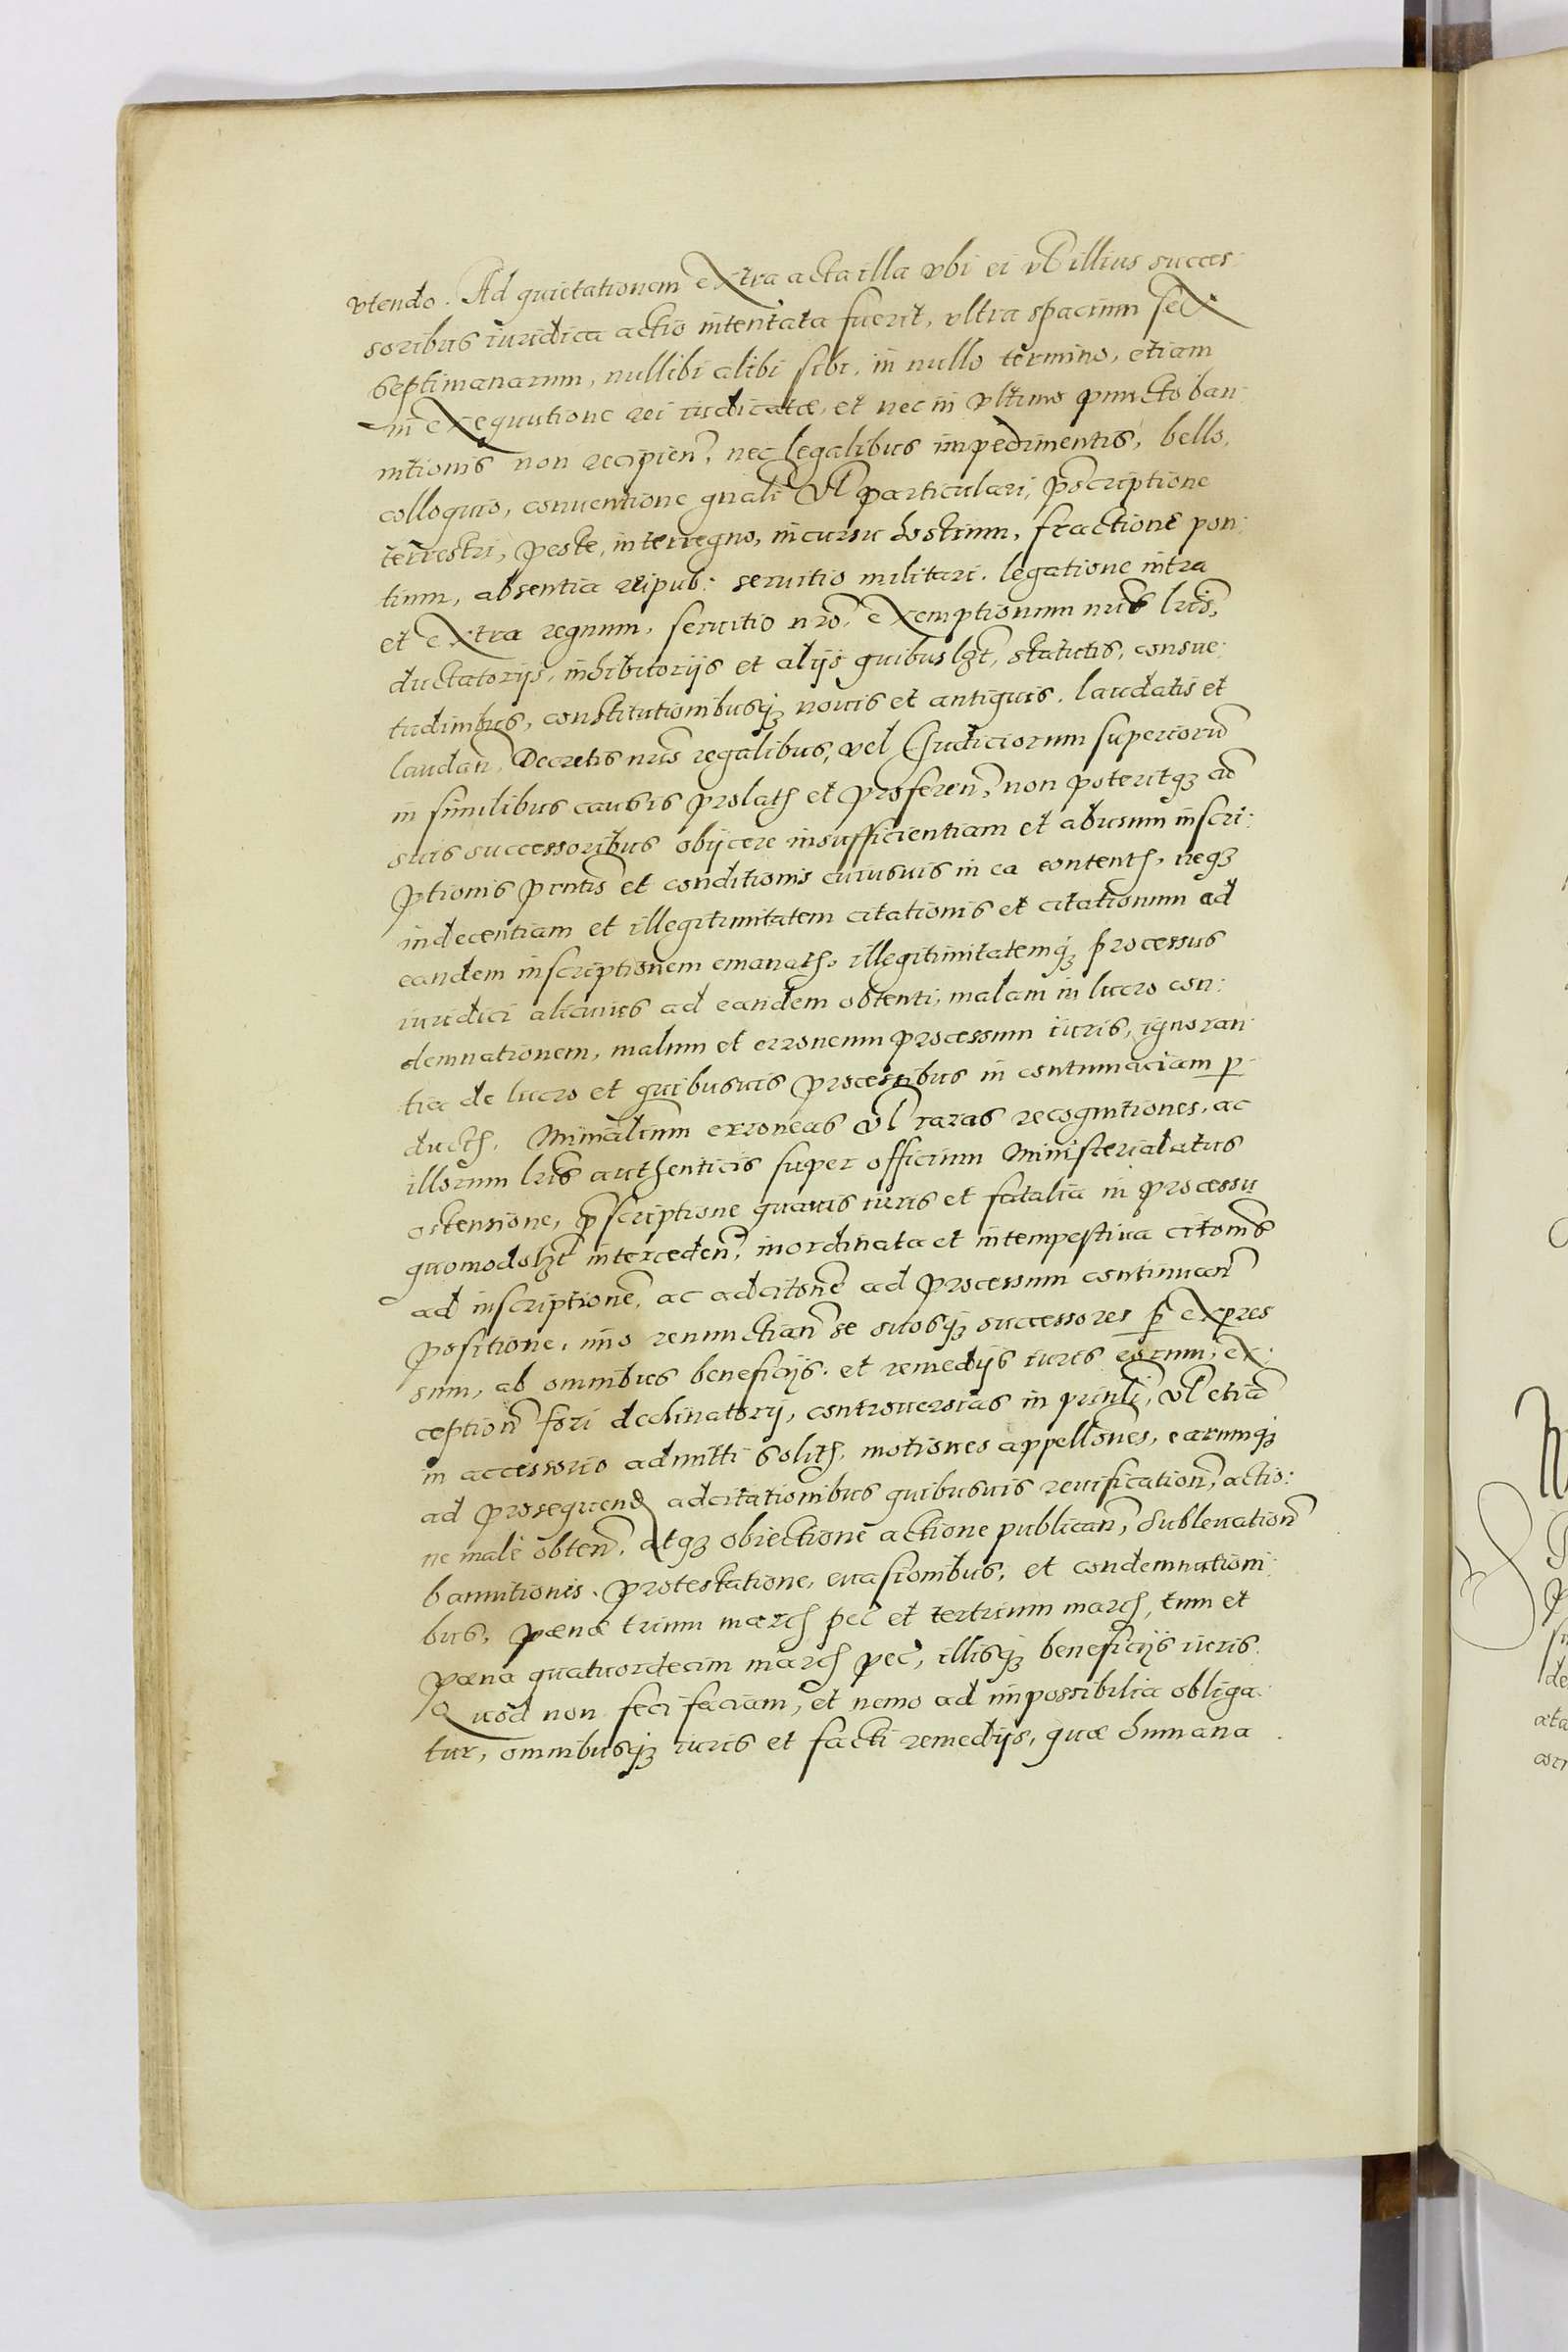 vtendo. Ad quietationem extra acta illa vbi ei vl illius succes:
soribus iuridica actio intentata fuerit, vltra spacium sex
septimanarum, nullibi alibi sibi, in nullo termino, etiam
in exequutione rei iudicatæ, et nec in vltimo puncto ban:
nitionis non recipien, nec legalibus impedimentis, bello,
colloquio, conuentione gnali vl particulari, pscriptione
terrestri, peste, interregno, incursu hostium, fractione pon:
tium, absentia reipub: seruitio militari, legatione intra
et extra regnum, seruitio nro, exemptionum nris lris,
ductatorijs, inhibitorijs et alijs quibuslzt, statutis, consue:
tudinibus, constitutionibusq nouis et antiquis, laudatis et
laudan, Decretis nris regalibus, vel Judiciorum superiorū
in similibus causis prolatis et proferen, non poteritq cū
suis successoribus obijcere insufficientiam et abusum inscri:
ptionis pntis et conditionis cuiusuis in ea contentis, neq
indecentiam et illegitimitatem citationis et citationum ad
eandem inscriptionem emanatis, illegitimitatemq processus
iuridici alicuius ad eandem obtenti, malam in lucro con:
demnationem, malum et erroneum processum iuris, ignoran
tia de lucro et quibusuis processibus in contumaciam p
ductis, Minālium erroneas vl raras recognitiones, ac
illorum lris authenticis super officium Ministerialatus
ostensione, pscriptione quauis iuris et fatalia in processu
quomodolzt interceden, inordinata et intempestiua citonis
ad inscriptione, ac adcitone ad processum continuan
positione, imo renunctian se suosq successores p expres
sum, ab omnibus beneficijs, et remedijs iuris eorum, ex:
ception fori declinatorij, controuersias in prinli, vl etiā
in accessorio admitti solitis, motiones appellones, earumq
ad prosequend adcitationibus quibusuis reuification, actio:
ne malè obten, atq obiectione actione publican, subleuation
bannitionis, protestatione, euasionibus, et condemnationi:
bus, pæna trium march pec et tertrium march, tum et
pæna quatuordecim march pec, illisq beneficijs iuris
Quod non feci faciam, et nemo ad impossibilia obliga
tur, omnibusq iuris et facti remedijs, quæ humana